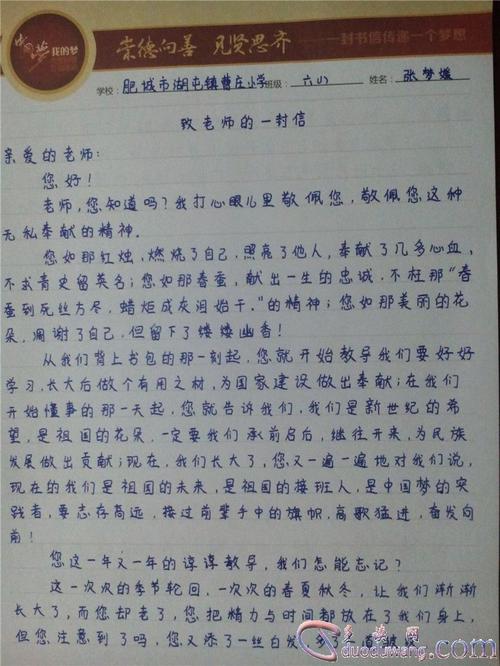 我的梦 崇德向善 见贤思齐 一封书信传递一个梦想
学校:肥城市湖屯镇曹庄小学 班级:六(1) 姓名:张梦媛
致老师的一封信
亲爱的老师:
您好!
老师,您知道吗?我打心眼儿里敬佩您,敬佩您这种
无私奉献的精神。
您如那红烛,燃烧了自己,照亮了他人,奉献了几多心血,
不求青史留英名;您如那春蚕,献出一生的忠诚,不枉那“春
蚕到死丝方尽,蜡炬成灰泪始干。”的精神;您如那美丽的花
朵,凋谢了自己,但留下了缕缕幽香!
从我们背上书包的那一刻起,您就开始教导我们要好好
学习,长大后做个有用之材,为国家建设做出奉献;在我们
开始懂事的那一天起,您就告诉我们,我们是新世纪的希
望,是祖国的花朵,一定要我们承前启后,继往开来,为民族
发展做出贡献;现在,我们长大了,您又一遍一遍地对我们说,
现在的我们是祖国的未来,是祖国的接班人,是中国梦的实
践者,要志存高远,接过前辈手中的旗帜,高歌猛进,奋发向
前!
您这一年又一年的谆谆教导,我们怎能忘记?
这一次次的季节轮回,一次次的春夏秋冬,让我们渐渐
长大了,而您却老了,您把精力与时间都放在了我们身上,
但您注意到了吗,您又添了一丝白发,
多读网
duoduwang.com